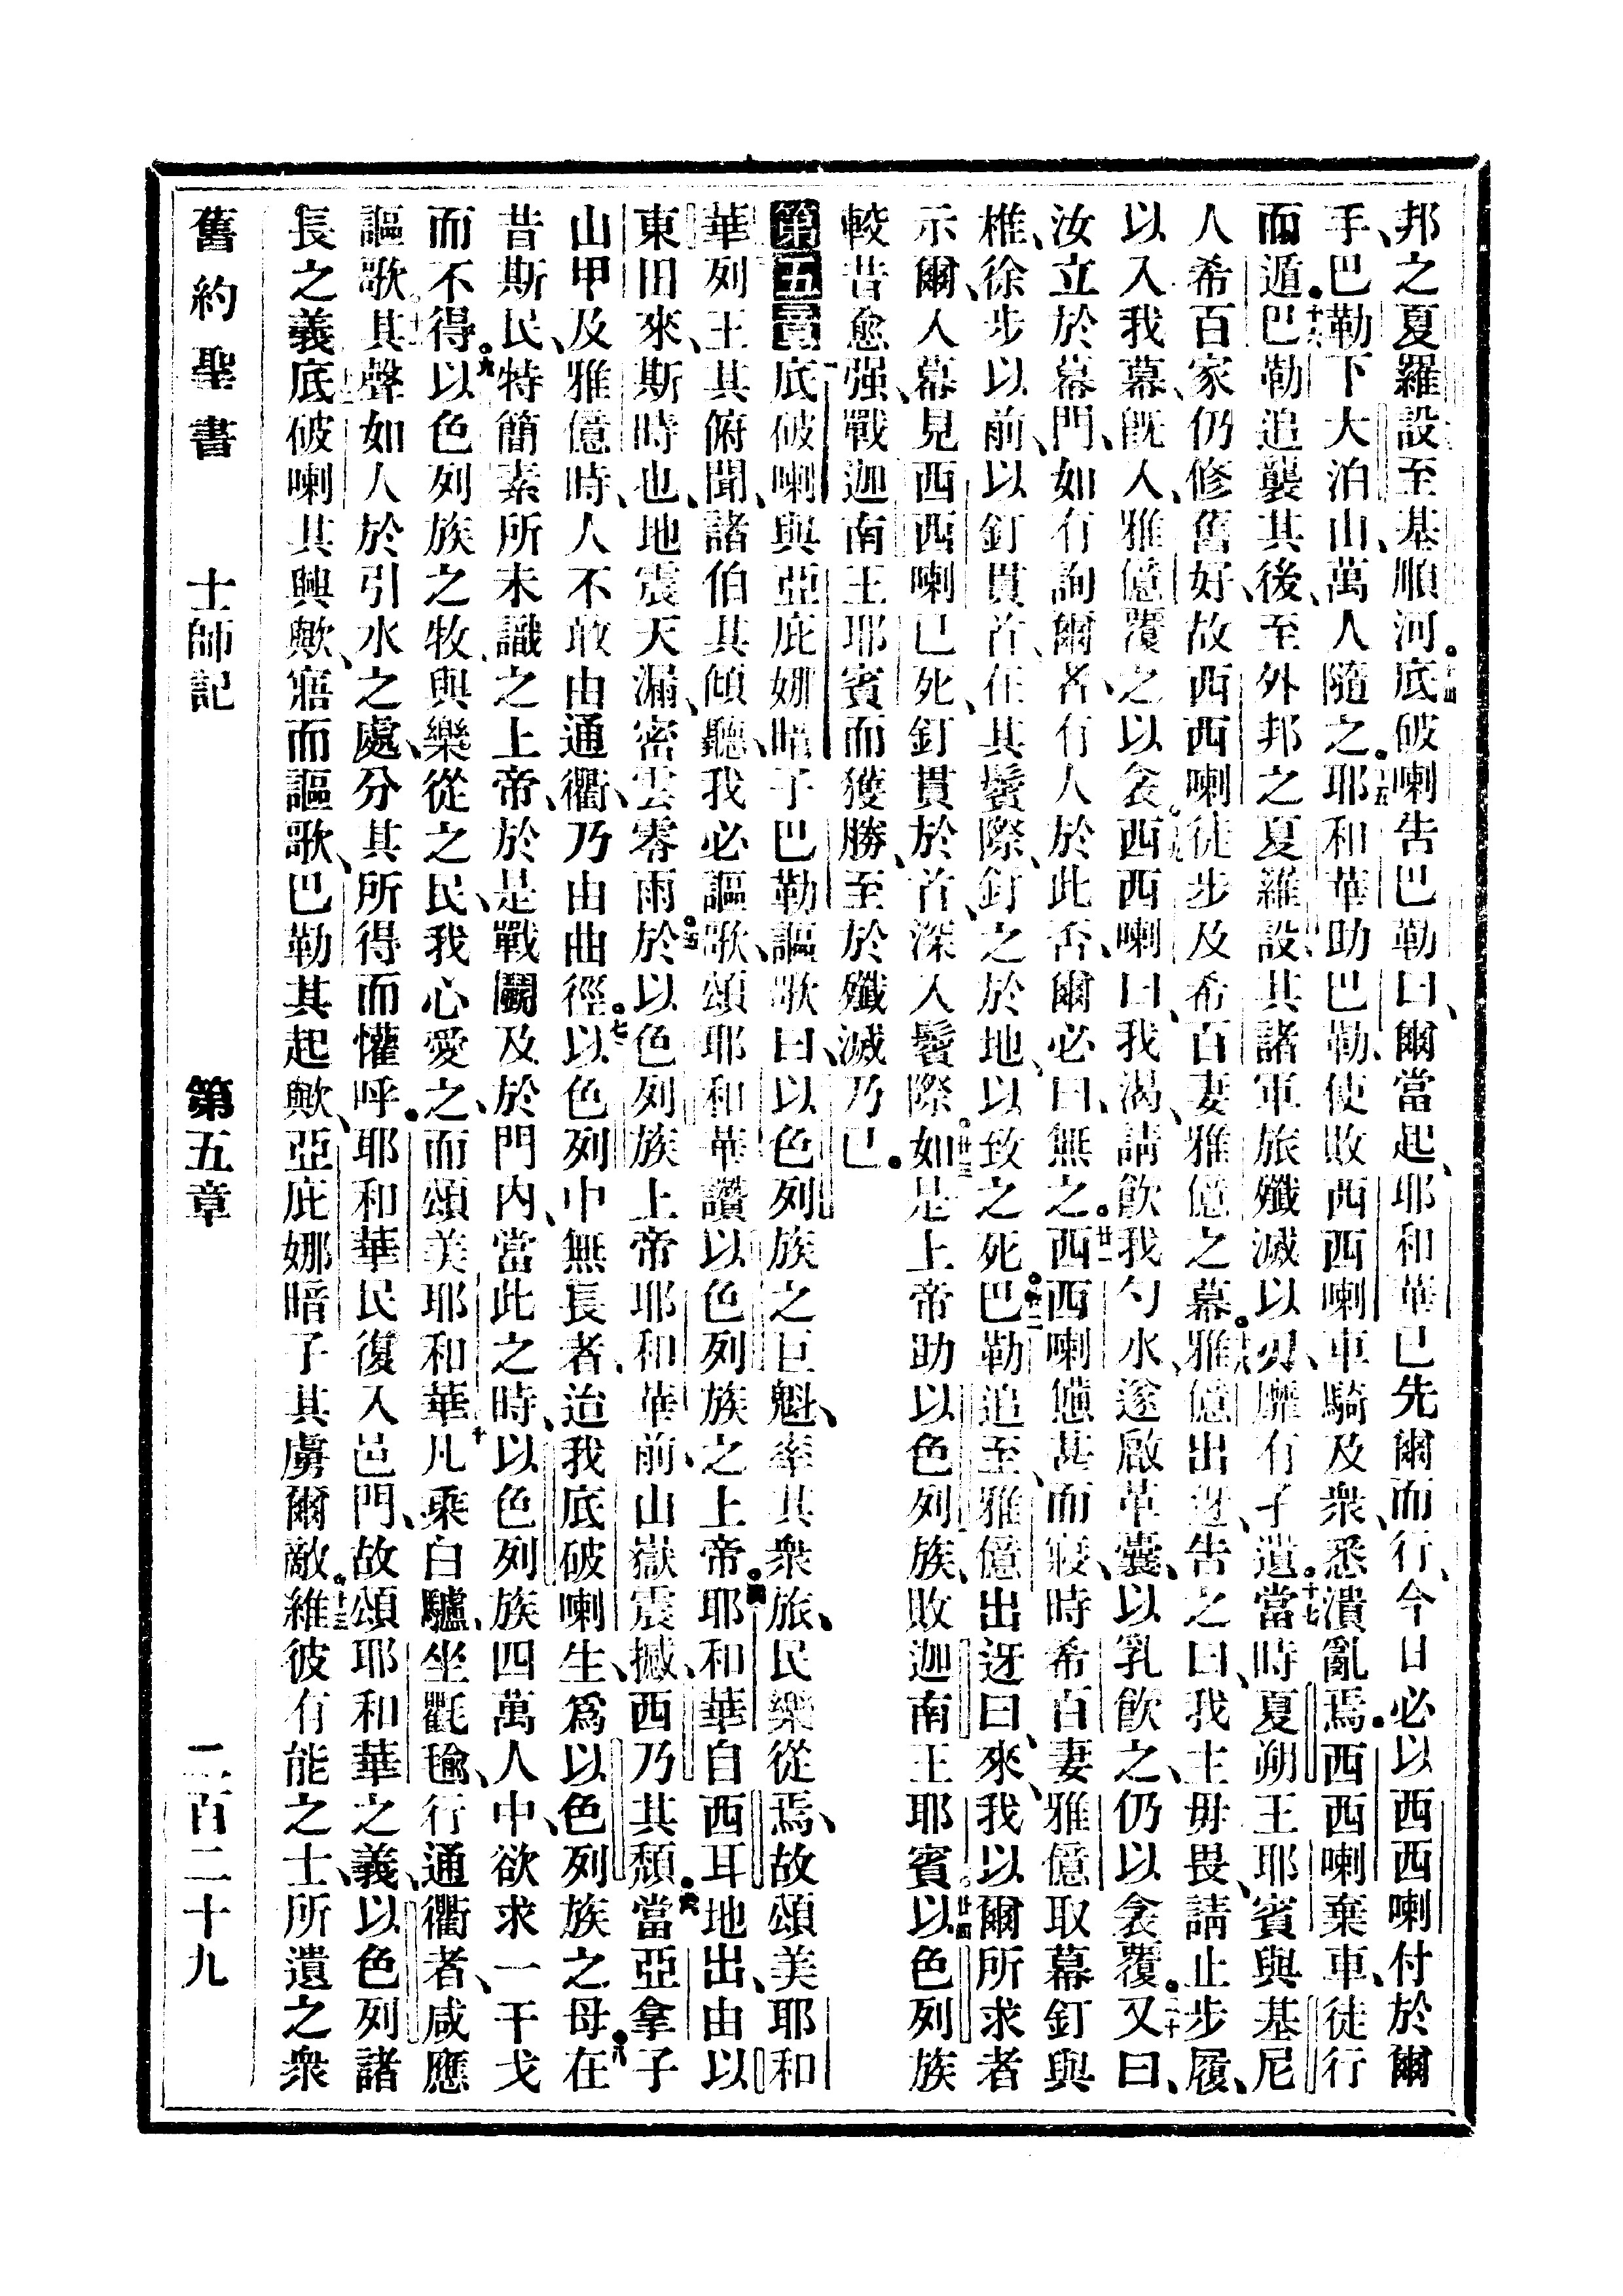 邦之夏羅設至基順河。十四底破喇告巴勒曰、爾當起、耶和華已先爾而行、今日必以西西喇付於爾
手、巴勒下大泊山、萬人隨之。十五耶和華助巴勒、使敗西西喇車騎及衆、悉潰亂焉。西西喇棄車、徒行
而遁。十六巴勒追襲其後、至外邦之夏羅設、其諸軍旅殲滅以刃、靡有孑遺。十七當時夏朔王耶賓與基尼
人希百家仍修舊好、故西西喇徒步及希百妻雅億之幕。十八雅億出迓、告之曰、我主毋畏、請止步履、
以入我幕、旣入、雅億覆之以衾。十九西西喇曰、我渴、請飮我勺水、遂啟革囊、以乳飮之、仍以衾覆。二十又曰、
汝立於幕門、如有詢爾者、有人於此否、爾必曰、無之。廿一西西喇憊甚而寢、時希百妻雅億取幕釘與
椎、徐步以前、以釘貫首、在其鬢際、釘之於地、以致之死。廿二巴勒追至、雅億出迓曰、來、我以爾所求者
示爾、入幕見西西喇已死、釘貫於首、深入鬢際。廿三如是上帝助以色列族、敗迦南王耶賓。廿四以色列族
較昔愈强、戰迦南王耶賓而獲勝、至於殲滅乃已。
第五章 底破喇與亞庇娜暗子巴勒謳歌曰、以色列族之巨魁、率其衆旅、民樂從焉、故頌美耶和
華、列王其俯聞、諸伯其傾聽、我必謳歌、頌耶和華、讚以色列族之上帝。四耶和華自西耳地出、由以
東田來、斯時也、地震天漏、密雲零雨於。五以色列族上帝耶和華前、山嶽震撼、西乃其頹。六當亞拿子
山甲、及雅億時、人不敢由通衢、乃由曲徑。七以色列中無長者、迨我底破喇生、爲以色列族之母。八在
昔斯民、特簡素所未識之上帝、於是戰鬭及於門內、當此之時、以色列族四萬人中、欲求一干戈
而不得。九以色列族之牧、與樂從之民、我心愛之、而頌美耶和華。十凡乘白驢、坐氍毹、行通衢者、咸應
謳歌。十一其聲如人於引水之處、分其所得而懽呼。耶和華民復入邑門、故頌耶和華之義、以色列諸
長之義。十二底破喇其興歟、寤而謳歌、巴勒其起歟、亞庇娜暗子其虜爾敵。十三維彼有能之士、所遺之衆
舊約聖書 士師記 第五章 二百二十九